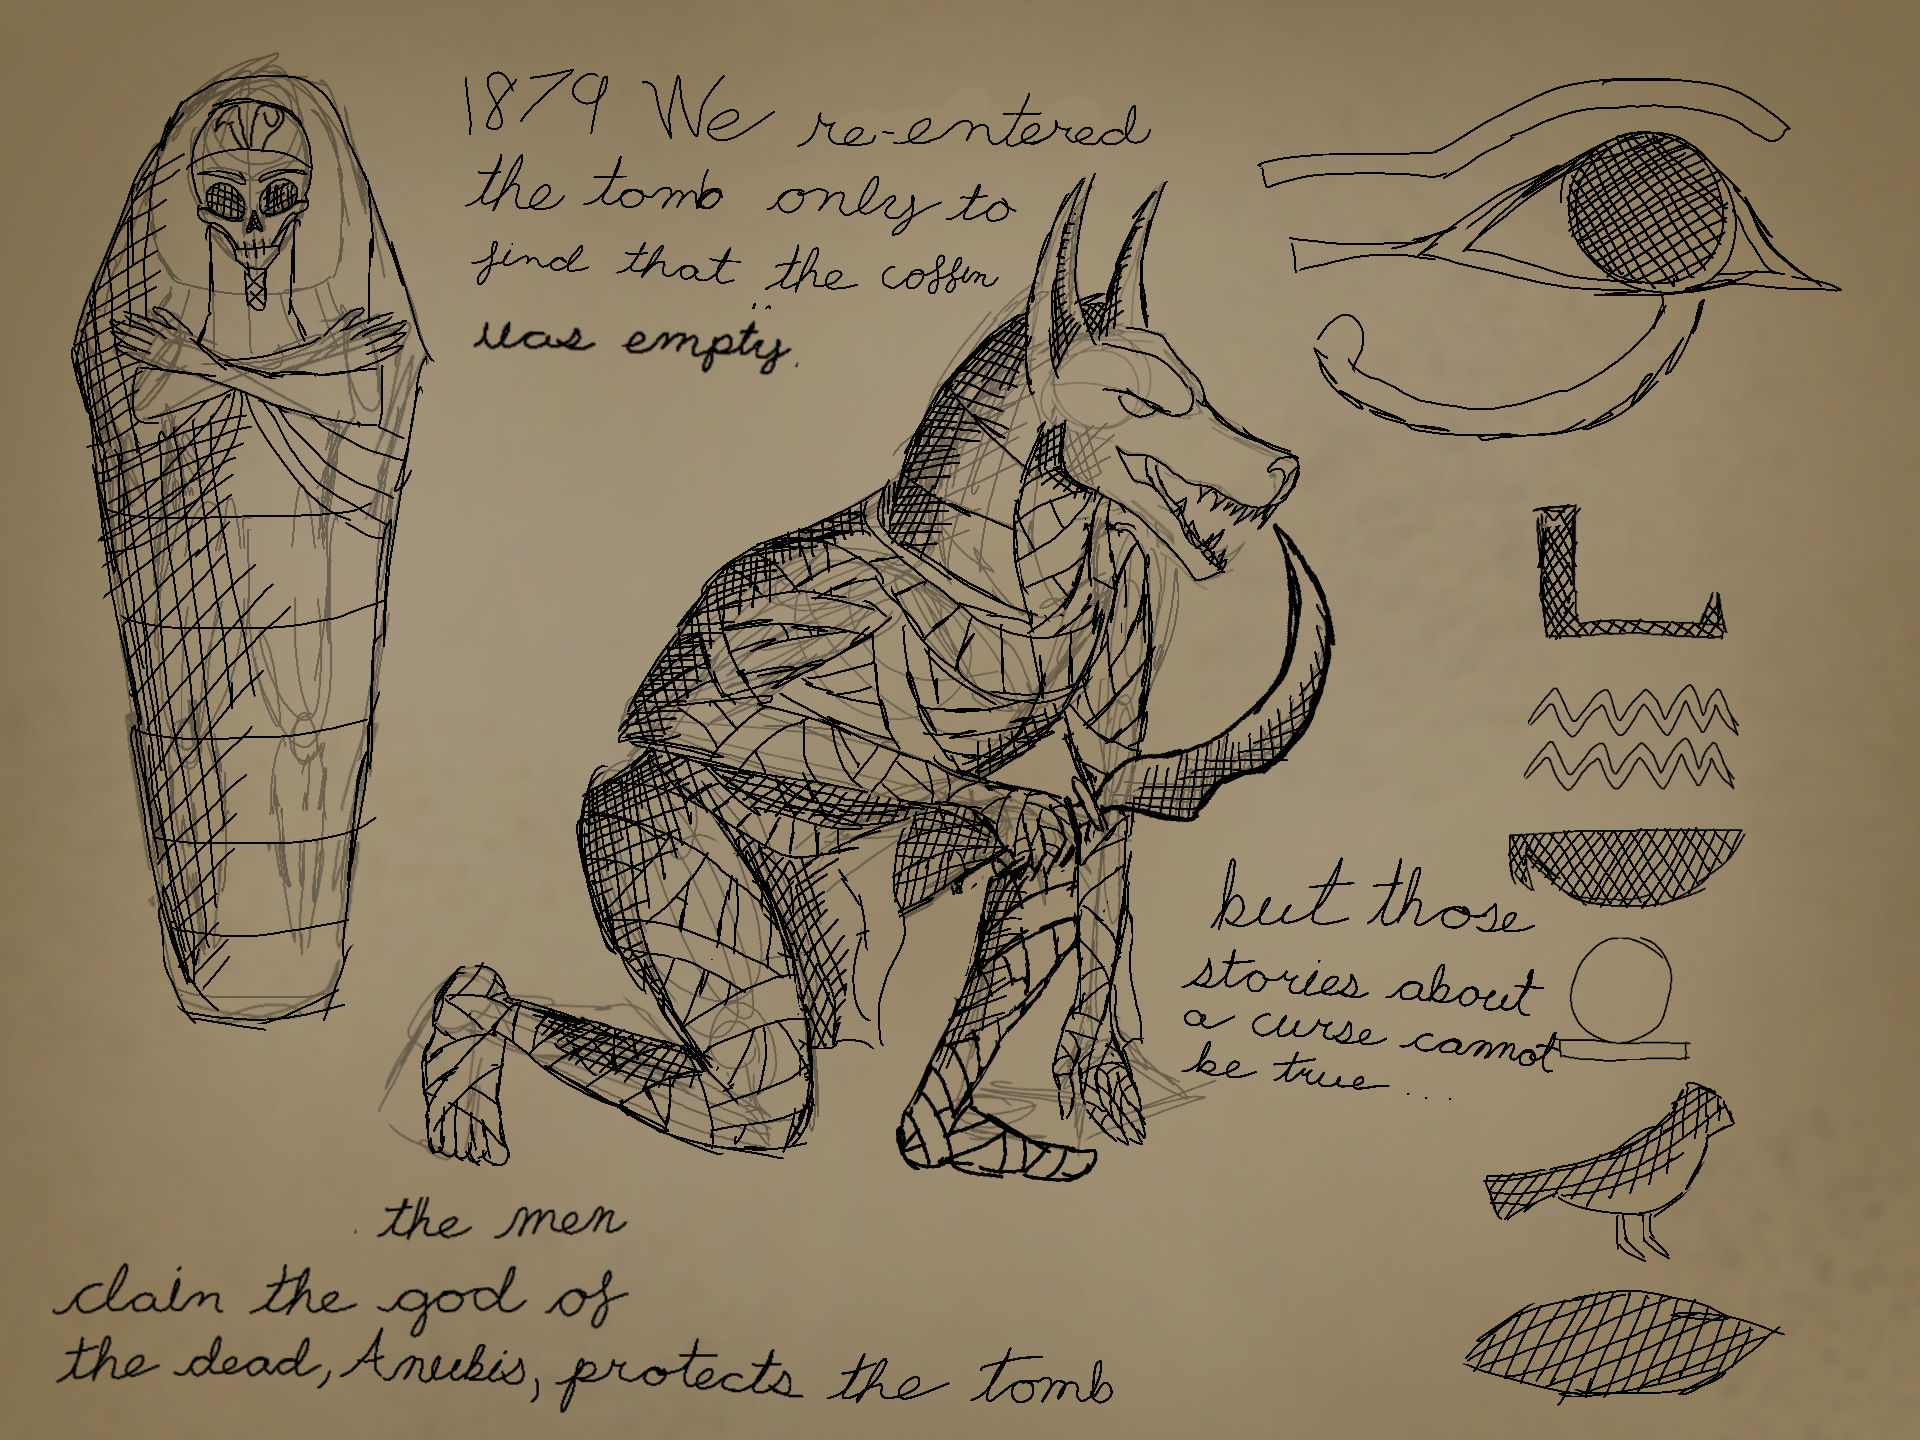 1879 We re-entered
the tomb only to
find that the coffin
was empty.
but those
stories about
a curse cannot
be true...
the men
claim the god of
the dead, Anubis, protects the tomb